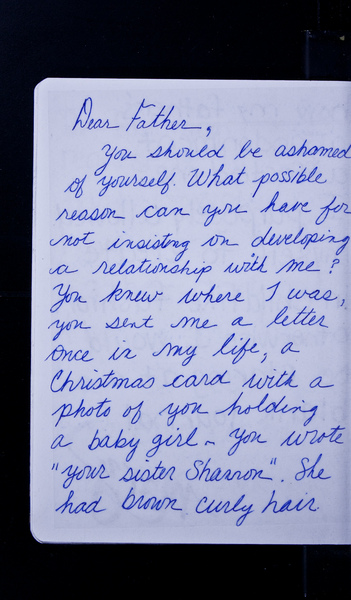 Dear Father,
You should be ashamed
of yourself. What possible
reason can you have for
not insisting on developing
a relationship with me?
You knew where I was,
you sent me a letter
once in my life, a
Christmas card with a
photo of you holding
a baby girl - you wrote
"your sister Shannon". She
had brown curly hair.